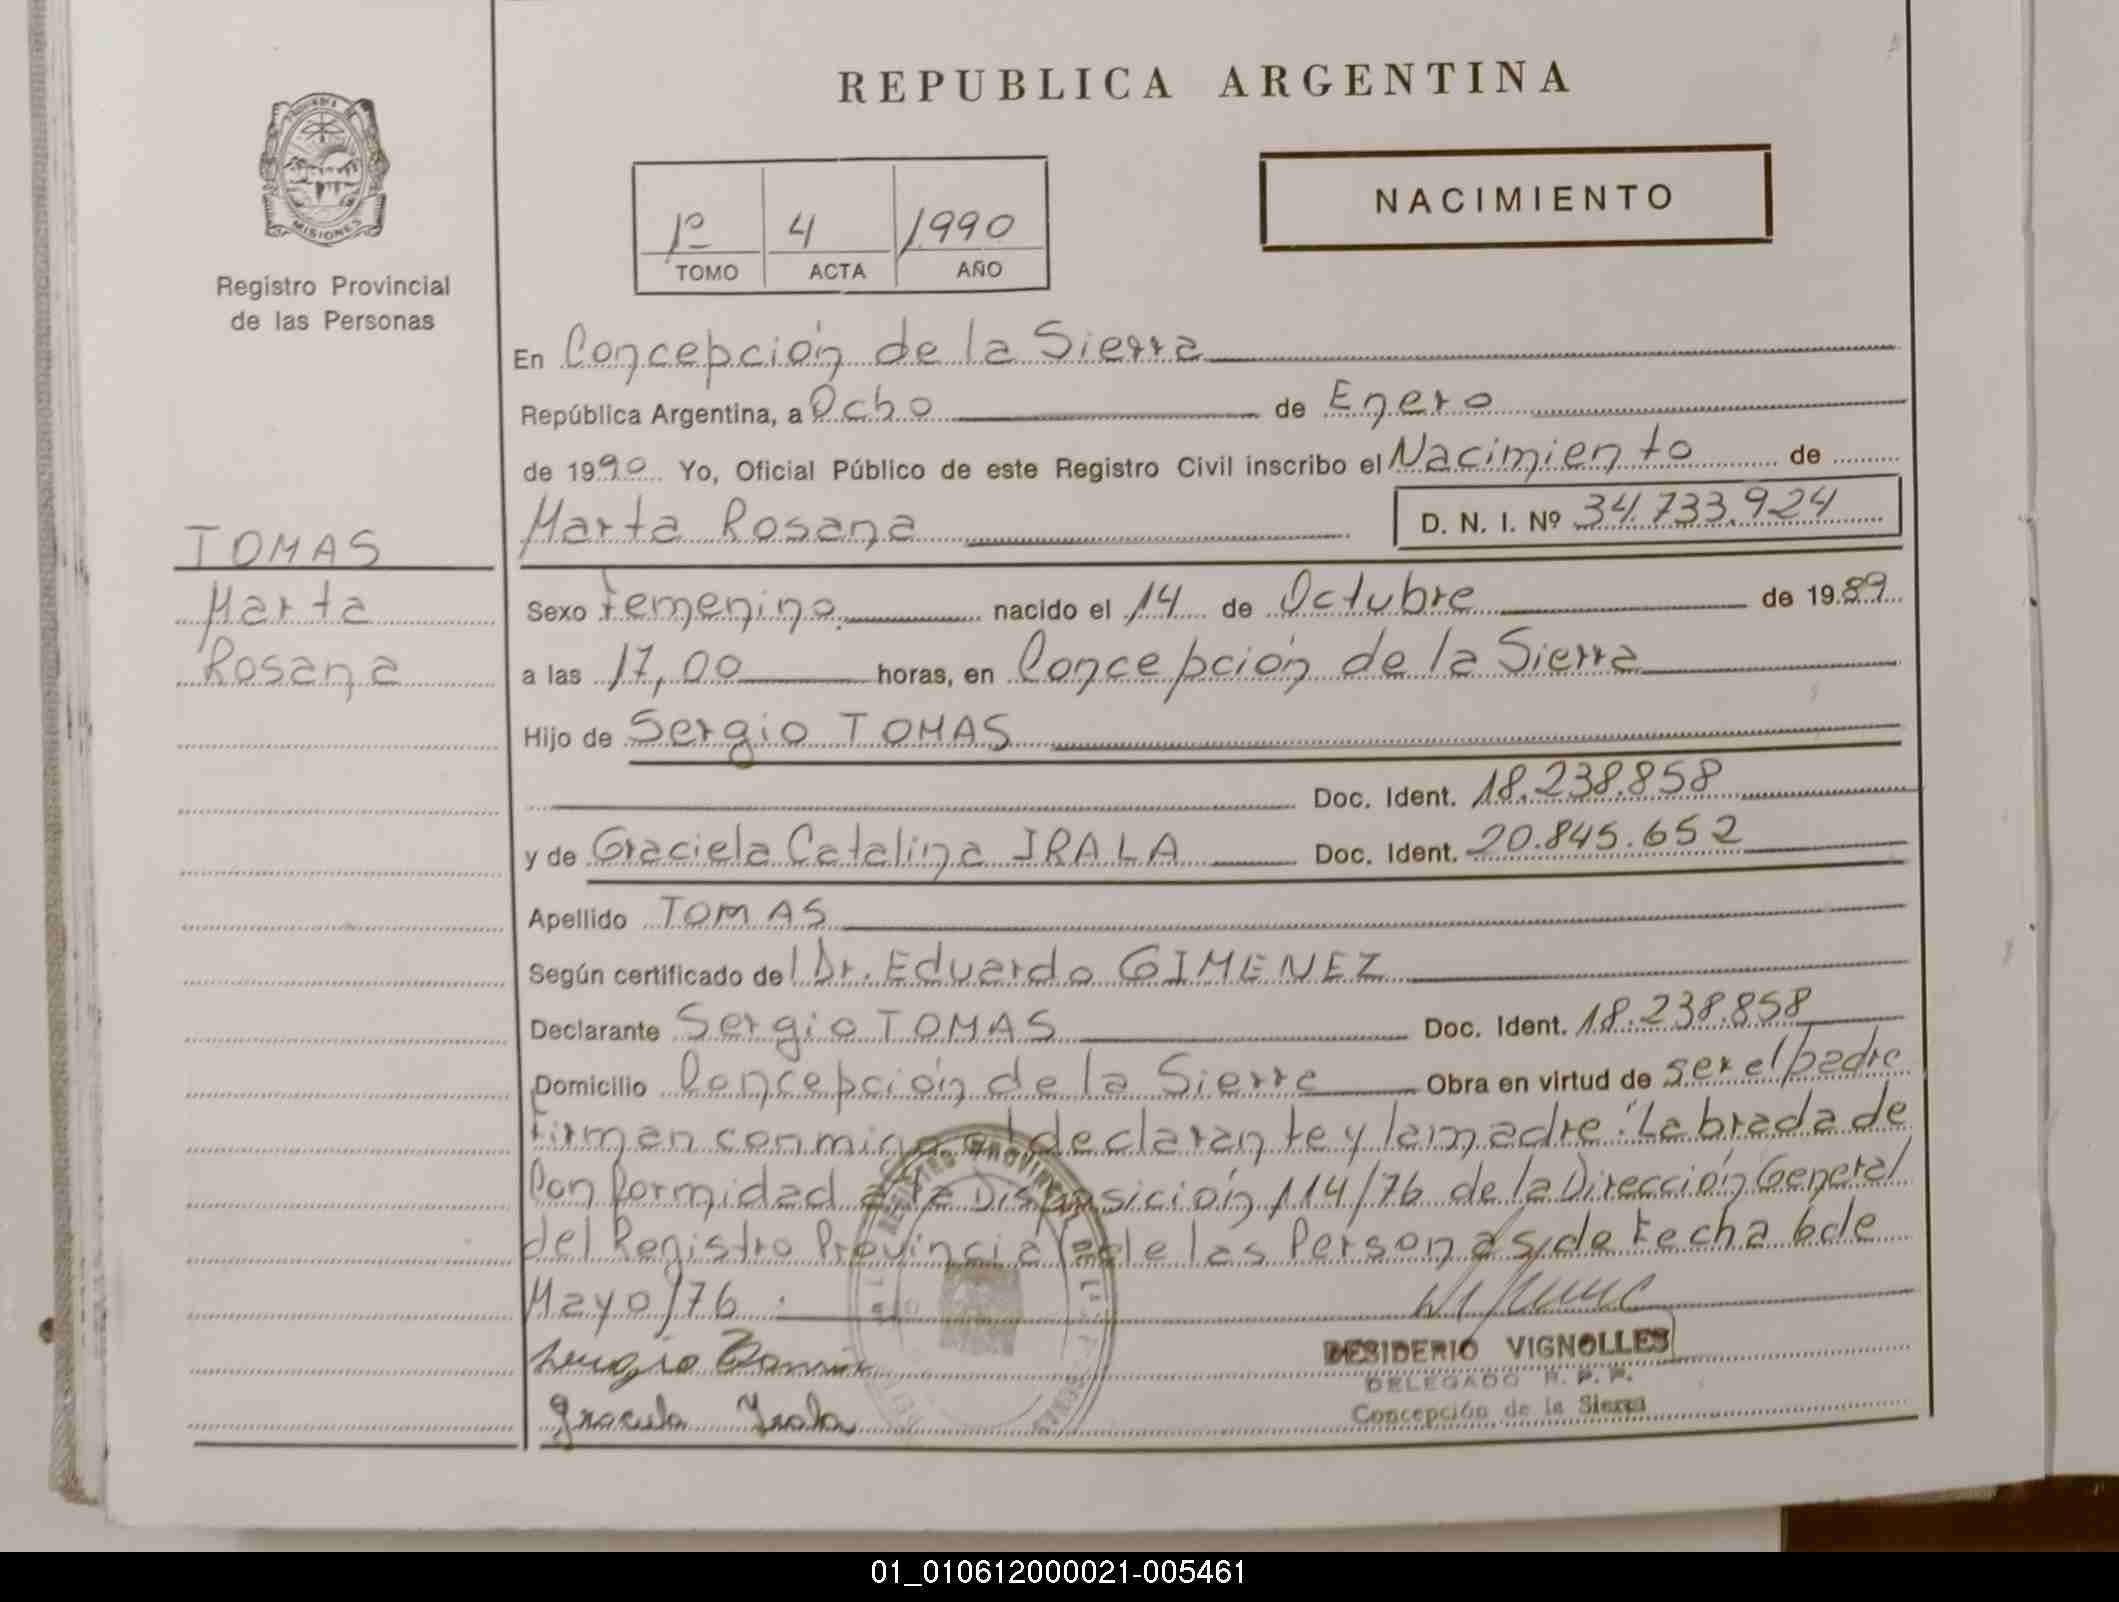 REPUBLICA ARGENTINA
NACIMIENTO
1º 4 1990
TOMO ACTA AÑO
MISIONES
Registro Provincial
de las Personas
En Concepción de la Sierra
República Argentina, a Ocho de Enero
de 1990 Yo, Oficial Público de este Registro Civil inscribo el Nacimiento de
Marta Rosana D. N. I. Nº 34.733.924
TOMAS
Marta
Rosana
Sexo Femenino. nacido el 14 de Octubre de 1989
a las 17,00 horas, en Concepción de la Sierra
Hijo de Sergio TOMAS
Doc. Ident. 18.238.858
y de Graciela Catalina IRALA Doc. Ident. 20.845.652
Apellido TOMAS
Según certificado del Dr. Eduardo GIMENEZ
Declarante Sergio TOMAS Doc. Ident. 18.238.858
Domicilio Concepción de la Sierra Obra en virtud de ser el padre
Firman conmigo el declarante y la madre. Labrada de
Conformidad a la Disposición 114/76 de la Dirección General
del Registro Provincial de las Personas de fecha 6 de
Mayo/76.
Sergio Tomas
Graciela Irala
DESIDERIO VIGNOLLES
DELEGADO R. P. P.
Concepción de la Sierra
01_010612000021-005461